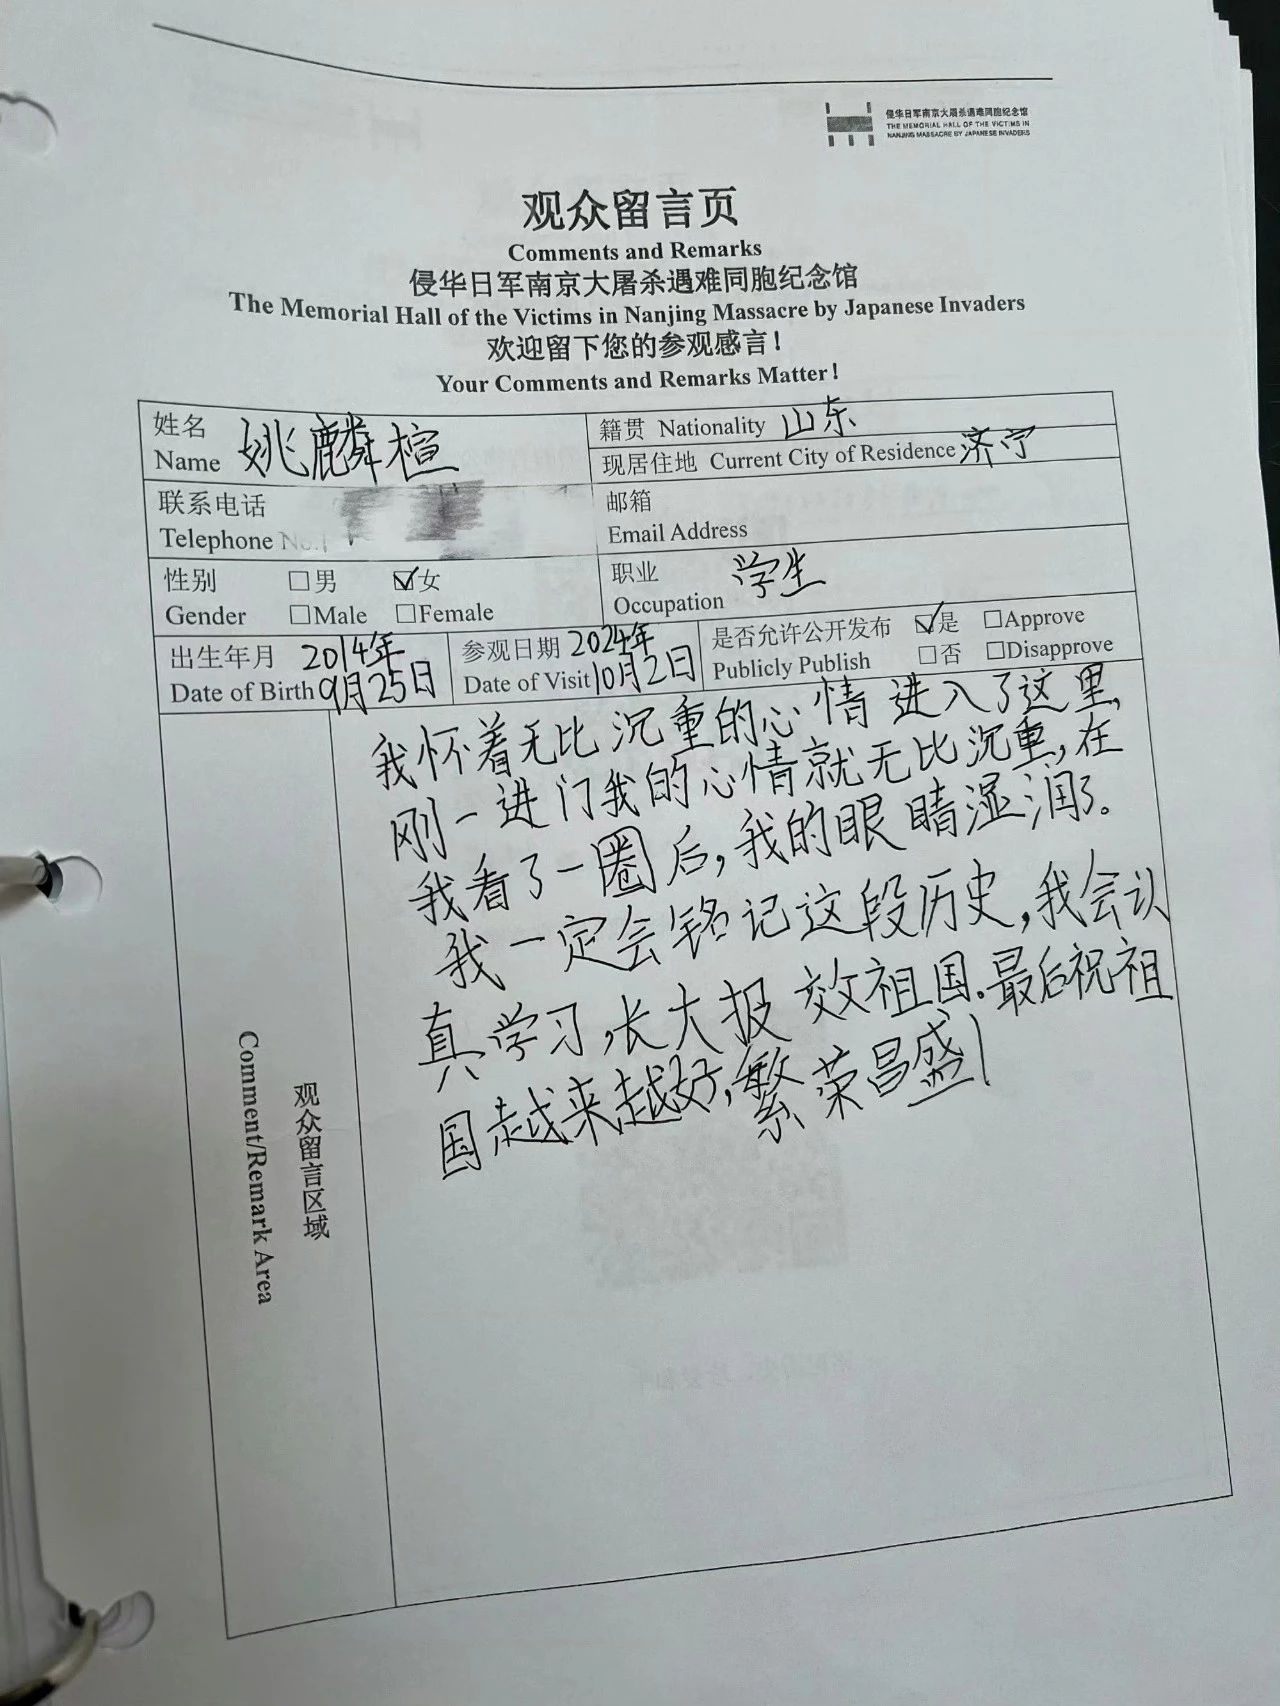 侵华日军南京大屠杀遇难同胞纪念馆
THE MEMORIAL HALL OF THE VICTIMS IN
NANJING MASSACRE BY JAPANESE INVADERS
观众留言页
Comments and Remarks
侵华日军南京大屠杀遇难同胞纪念馆
The Memorial Hall of the Victims in Nanjing Massacre by Japanese Invaders
欢迎留下您的参观感言！
Your Comments and Remarks Matter！
姓名 Name 姚麟楦
籍贯 Nationality 山东
现居住地 Current City of Residence 济宁
联系电话 Telephone No.
邮箱 Email Address
性别 □男 ☑女
Gender □Male □Female
职业 Occupation 学生
出生年月 2014年
Date of Birth 9月25日
参观日期 2024年
Date of Visit 10月2日
是否允许公开发布 ☑是 □Approve
Publicly Publish □否 □Disapprove
观众留言区域
Comment/Remark Area
我怀着无比沉重的心情进入了这里,
刚一进门我的心情就无比沉重,在
我看了一圈后,我的眼睛湿润了。
我一定会铭记这段历史,我会认
真学习,长大报效祖国.最后祝祖
国越来越好,繁荣昌盛!